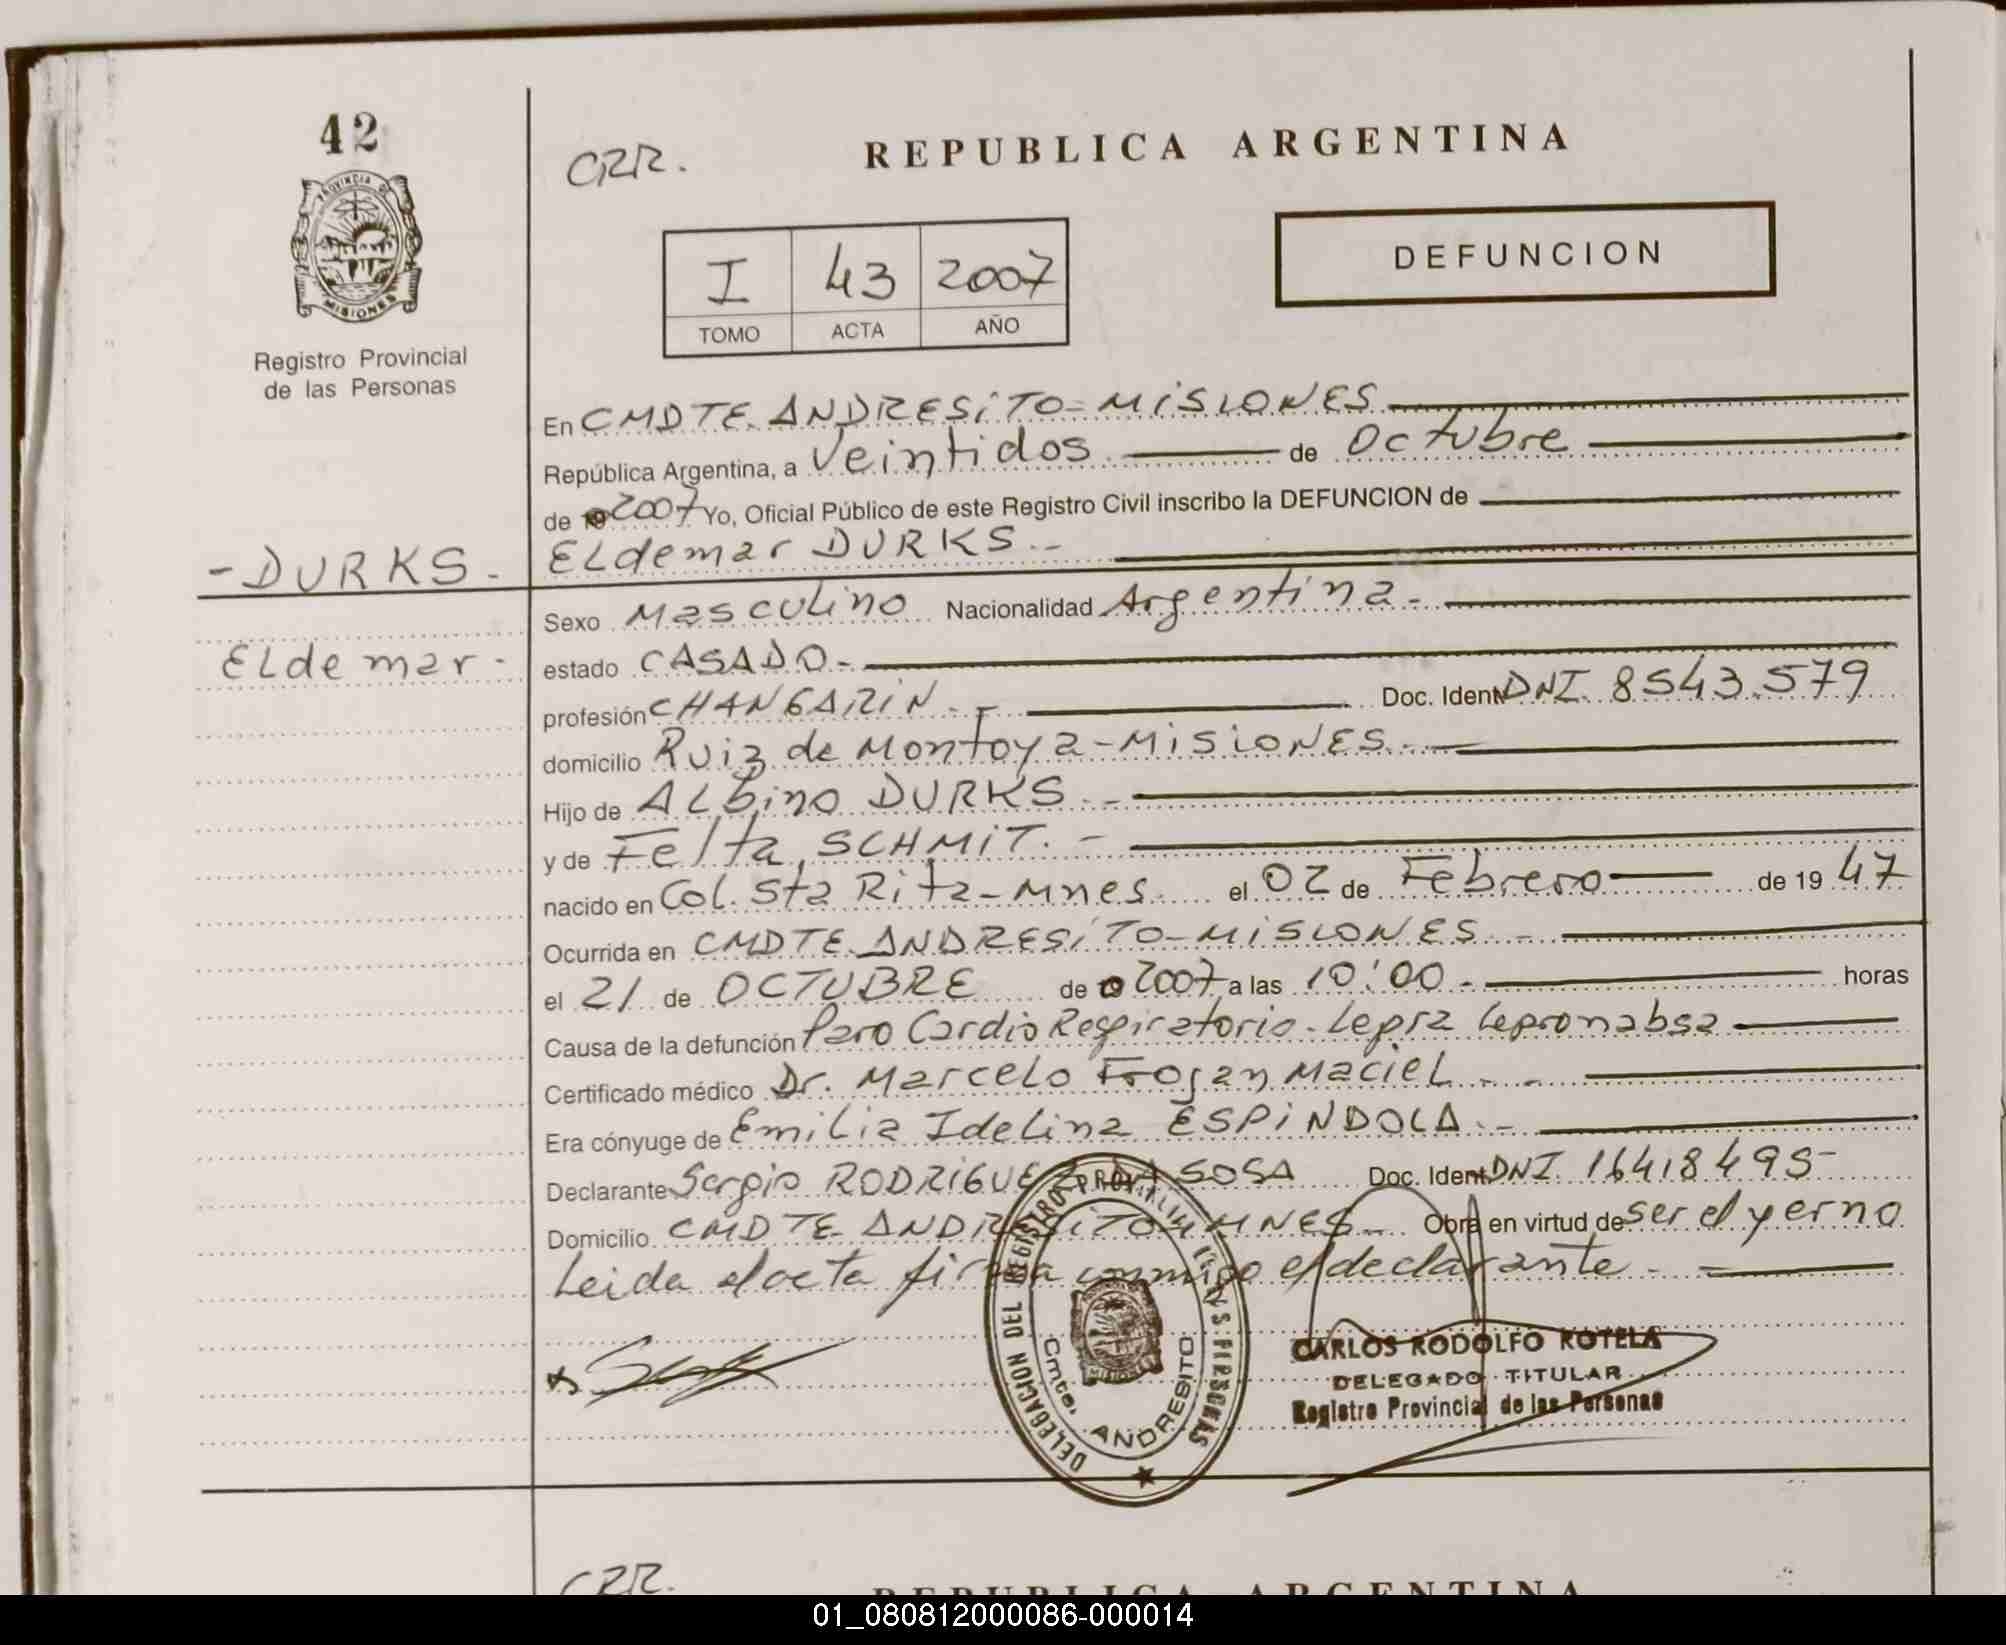 42
PROVINCIA DE
MISIONES
Registro Provincial
de las Personas
CRR.
REPUBLICA ARGENTINA
I 43 2007
TOMO ACTA AÑO
DEFUNCION
En CMDTE ANDRESiTO-MiSiONES
República Argentina, a Veintidos de Octubre
de 19 2007 Yo, Oficial Público de este Registro Civil inscribo la DEFUNCION de
-DURKS.
ELdemar DURKS.-
Sexo Masculino Nacionalidad Argentina-
ELdemar-
estado CASADO-
profesión CHANGARiN.- Doc. Ident. DNI. 8543.579
domicilio Ruiz de Montoya-MiSiONES.-
Hijo de ALbino DURKS.-
y de Felta SCHMiT.-
nacido en Col. Sta Rita-Mnes. el 02 de Febrero de 19 47
Ocurrida en CMDTE ANDRESiTO-MiSiONES.-
el 21 de OCTUBRE de 19 2007 a las 10:00- horas
Causa de la defunción Paro Cardio Respiratorio. Lepra
Certificado médico Dr. Marcelo Maciel.-
Era cónyuge de Emilia Idelina ESPiNDOLA.-
Declarante Sergio RODRiGUEZ DA SOSA Doc. Ident. DNI. 16418495
Domicilio CMDTE ANDRESiTO-MNES- Obra en virtud de ser el yerno
Leida el acta firma conmigo el declarante.-
DELEGACION DEL REGISTRO PROVINCIAL DE LAS PERSONAS
Cmte. ANDRESITO
CARLOS RODOLFO ROTELA
DELEGADO TITULAR
Registro Provincial de las Personas
CRR.
REPUBLICA ARGENTINA
01_080812000086-000014